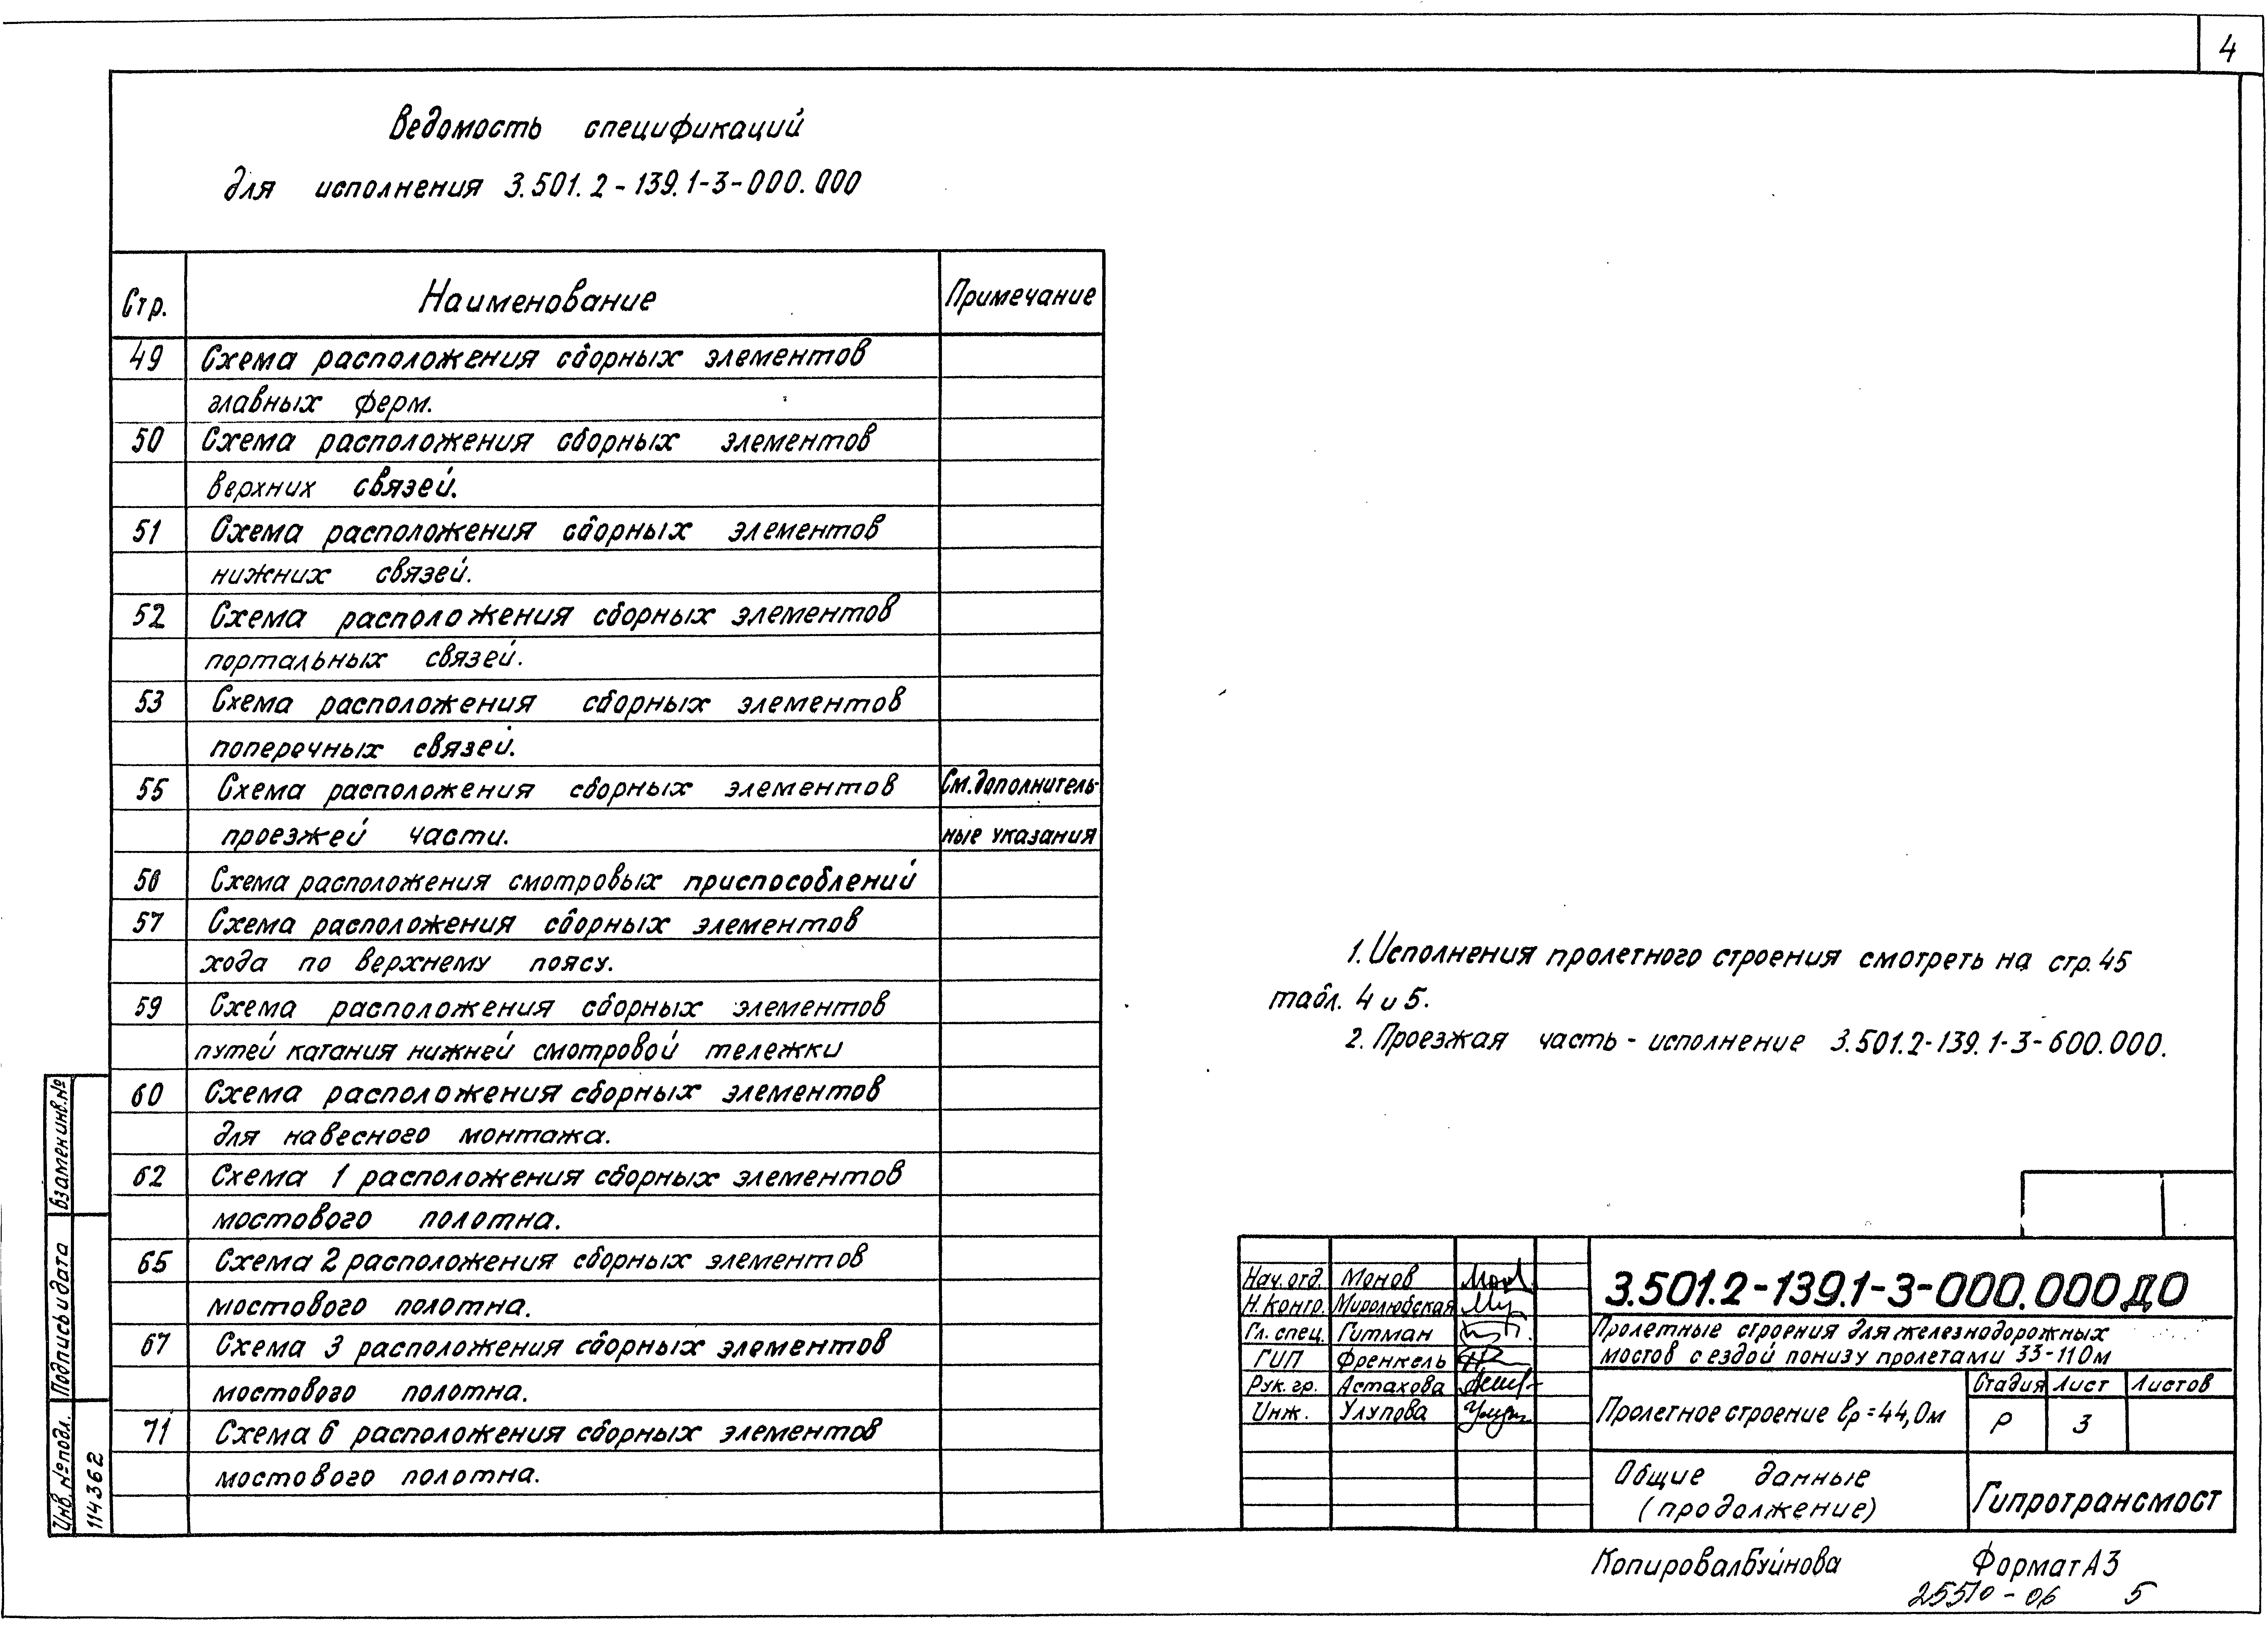 4
Ведомость спецификаций
для исполнения 3.501.2-139.1-3-000.000
Стр. Наименование Примечание
49 Схема расположения сборных элементов
главных ферм.
50 Схема расположения сборных элементов
верхних связей.
51 Схема расположения сборных элементов
нижних связей.
52 Схема расположения сборных элементов
портальных связей.
53 Схема расположения сборных элементов
поперечных связей.
55 Схема расположения сборных элементов См. дополнитель-
проезжей части. ные указания
56 Схема расположения смотровых приспособлений
57 Схема расположения сборных элементов
хода по верхнему поясу.
59 Схема расположения сборных элементов
путей катания нижней смотровой тележки
60 Схема расположения сборных элементов
для навесного монтажа.
62 Схема 1 расположения сборных элементов
мостового полотна.
65 Схема 2 расположения сборных элементов
мостового полотна.
67 Схема 3 расположения сборных элементов
мостового полотна.
71 Схема 6 расположения сборных элементов
мостового полотна.
1. Исполнения пролетного строения смотреть на стр. 45
табл. 4 и 5.
2. Проезжая часть - исполнение 3.501.2-139.1-3-600.000.
Взамен инв.№
Подпись и дата
Инв. № подл.
114362
Нач. отд. Монов
Н. контр. Миролюбская
Гл. спец. Гитман
ГИП Френкель
Рук. гр. Астахова
Инж. Улупова
3.501.2-139.1-3-000.000 ДО
Пролетные строения для железнодорожных
мостов с ездой понизу пролетами 33-110м
Пролетное строение lр = 44,0м
Стадия Лист Листов
Р 3
Общие данные
(продолжение)
Гипротрансмост
Копировал Буйнова Формат А3
25510-06 5